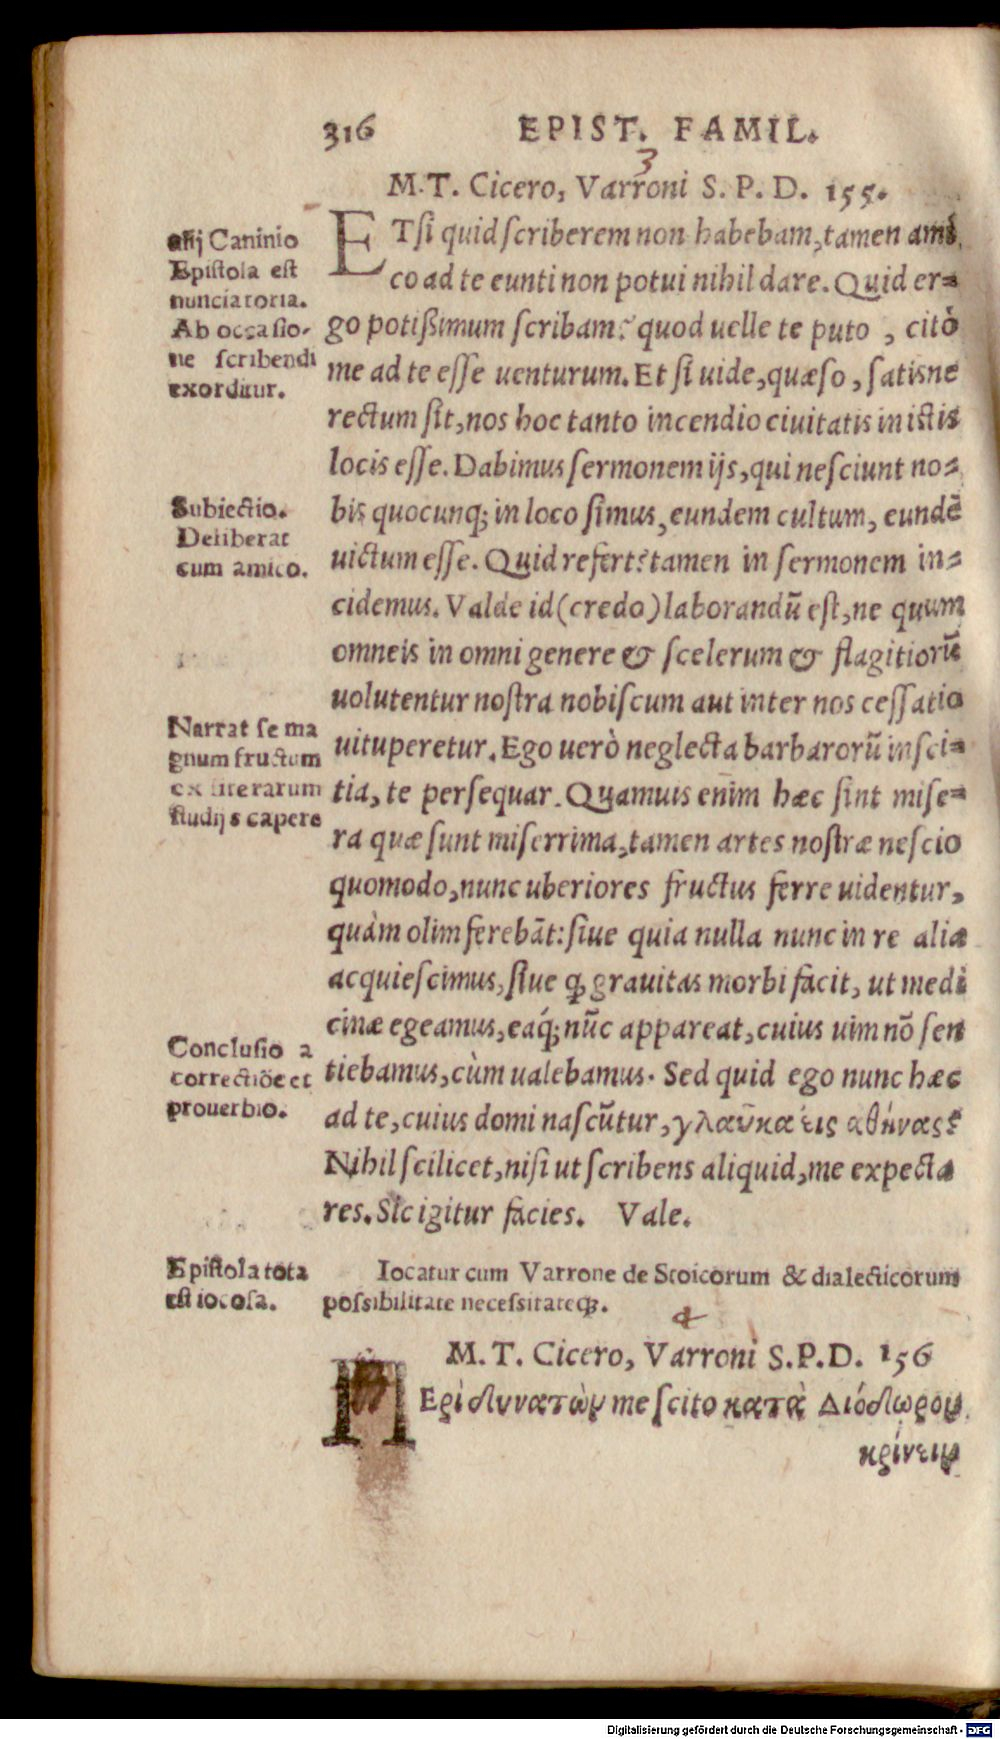 316 EPIST. FAMIL.
3
M.T. Cicero, Varroni S. P. D. 155.
ETsi quid scriberem non habebam, tamen ami
co ad te eunti non potui nihil dare. Quid er=
go potißimum scribam? quod uelle te puto, citò
me ad te esse uenturum. Etsi uide, quæso, satisne
rectum sit, nos hoc tanto incendio ciuitatis in istis
locis esse. Dabimus sermonem ijs, qui nesciunt no=
bis quocunq; in loco simus, eundem cultum, eundē
uictum esse. Quid refert? tamen in sermonem in=
cidemus. Valde id (credo) laborandū est, ne quum
omneis in omni genere & scelerum & flagitiorū
uolutentur nostra nobiscum aut inter nos cessatio
uituperetur. Ego uerò neglecta barbarorū insci=
tia, te persequar. Quamuis enim hæc sint mise=
ra quæ sunt miserrima, tamen artes nostræ nescio
quomodo, nunc uberiores fructus ferre uidentur,
quàm olim ferebāt: siue quia nulla nunc in re alia
acquiescimus, siue ꝙ grauitas morbi facit, ut medi
cinæ egeamus, eaq́; nūc appareat, cuius uim nō sen
tiebamus, cùm ualebamus. Sed quid ego nunc hæc
ad te, cuius domi nascūtur, γλαῦκα εἰς αθήνας?
Nihil scilicet, nisi ut scribens aliquid, me expecta
res. Sic igitur facies. Vale.
Caninio
Epistola est
nunciatoria.
Ab occasio-
ne scribendi
exorditur.
Subiectio.
Deliberat
cum amico.
Narrat se ma
gnum fructum
ex literarum
studijs capere
Conclusio a
correctiōe et
prouerbio.
Epistola tota
est iocosa.
Iocatur cum Varrone de Stoicorum & dialecticorum
possibilitate necessitateq́;.
4
M. T. Cicero, Varroni S.P.D. 156
ΠΕρὶ δυνατῶν me scito κατὰ Διόδωρον
κρίνειν
Digitalisierung gefördert durch die Deutsche Forschungsgemeinschaft - DFG